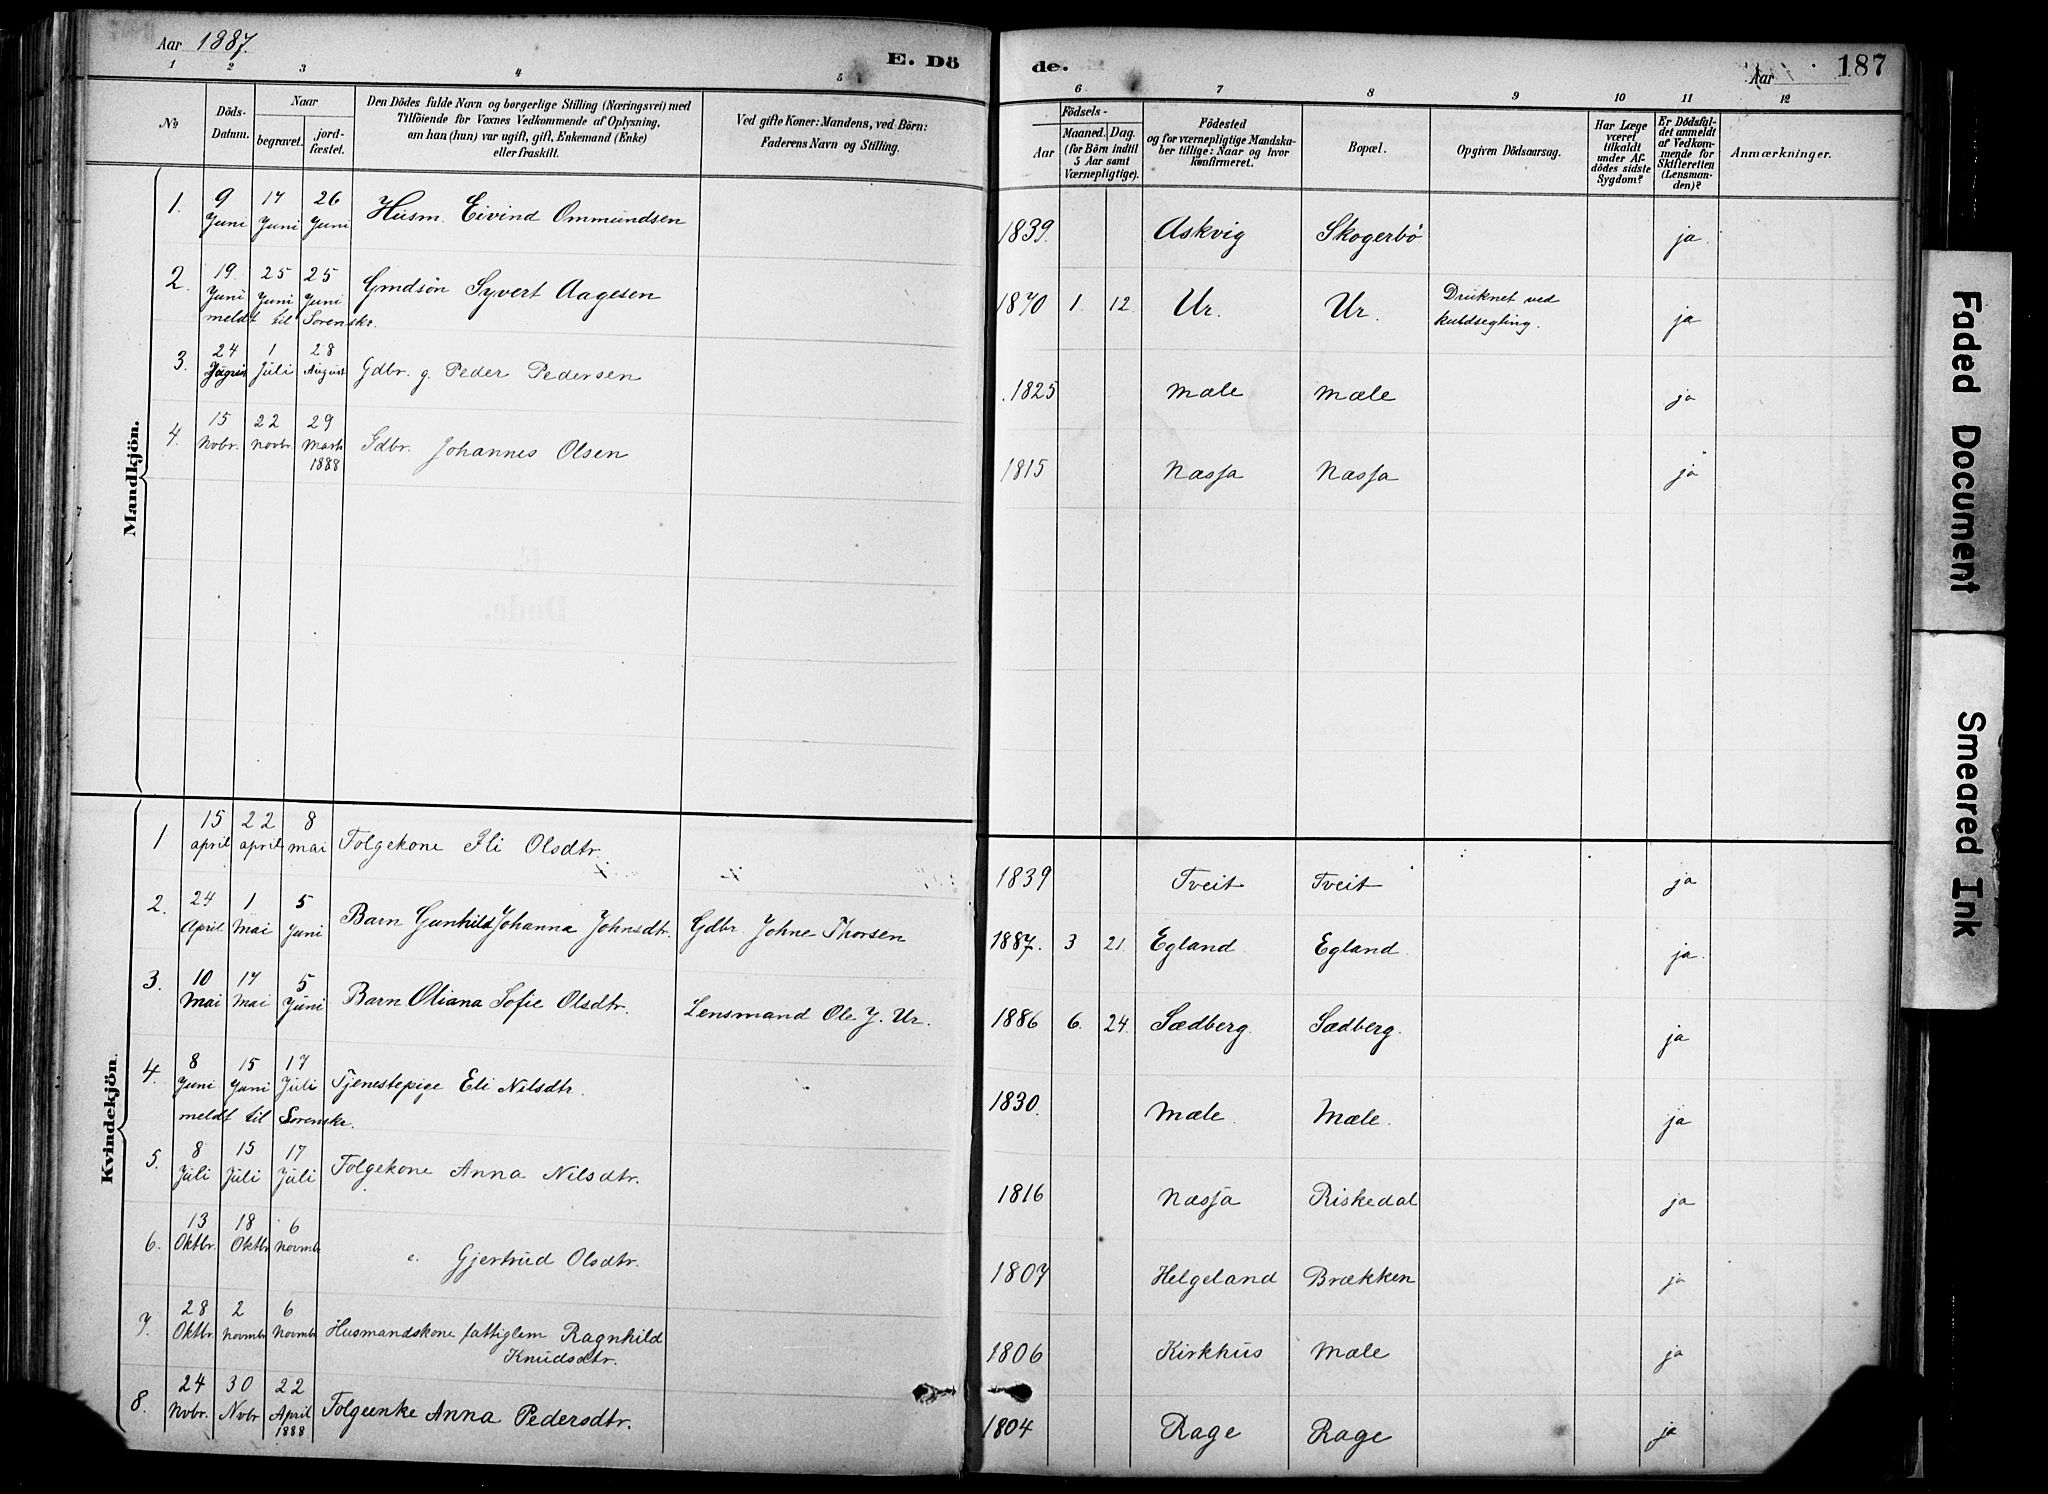 Aar 1887.
E. Dö
de.
Aar
187
1 2 3 4 5 6 7 8 9 10 11 12
No
Döds-Datum.
Naar
begravet.
jordfæstet.
Den Dödes fulde Navn og borgerlige Stilling (Næringsvei) med
Tilföiende for Voxnes Vedkommende af Oplysning,
om han (hun) var ugift, gift, Enkemand (Enke)
eller fraskilt.
Ved gifte Koner: Mandens, ved Börn:
Faderens Navn og Stilling.
Födsels-
Aar
Maaned. Dag.
(for Börn indtil
5 Aar samt
Værnepligtige).
Födested
og for værnepligtige Mandskaber tillige: Naar og hvor
konfirmeret.
Bopæl.
Opgiven Dödsaarsag.
Har Læge
været
tilkaldt
under Afdödes sidste
Sygdom?
Er Dödsfaldet anmeldt
af Vedkommende for
Skifteretten
(Lensmanden)?
Anmærkninger.
Mandkjön.
1. 9 Juni 17 Juni 26 Juni Husm. Eivind Ommundsen 1839. Askvig Skogerbö ja.
2. 19. Juni 25 Juni 25 Juni Gmdsön Syvert Aagesen 1870 1. 12. Ur. Ur. Druknet ved ja
meldt til Sorenskr.
3. 24 1 Juli 28 August Gdbr. g. Peder Pedersen 1825 Mæle Mæle ja
4. 15 Novbr. 22 Novbr. 29 Marts 1888 Gdbr. Johannes Olsen 1815 Næsja Næsja ja
Kvindekjön.
1 15 april 22 april 8 mai Folgekone Ili Olsdtr. 1839 Tveit Tveit ja
2. 24 April 1 Mai 5 Juni Barn Gunhild Johanna Johnsdtr. Gdbr. Johne Thorsen 1887. 3 21. Egland Egland ja.
3. 10 Mai 17 Mai 5 Juni Barn Oliana Sofie Olsdtr. Lensmand Ole J. Ur. 1886 6. 24. Sædberg. Sædberg. ja
4. 8 Juni 15 Juni 17 Juli Tjenestepige Eli Nilsdtr. 1830. Mæle. Mæle. ja
meldt til Sorenskr.
5. 8 Juli 15 Juli 17 Juli Folgekone Anna Nilsdtr. 1816 Næsja Riskedal ja
6. 13 Oktbr. 18 Oktbr. 6 Novmb. e. Gjertrud Olsdtr. 1807 Helgeland Brækken ja
7. 28 Oktbr. 2 Novmb. 6 Novmb. Husmandskone fattiglem Ragnhild 1806 Kirkhus Mæle ja
Knudsdtr.
8. 24 Nvbr. 30 Nvbr 22 April 1888 Folgeenke Anna Pedersdtr. 1804 Rage Rage ja
Faded Document
Smeared Ink